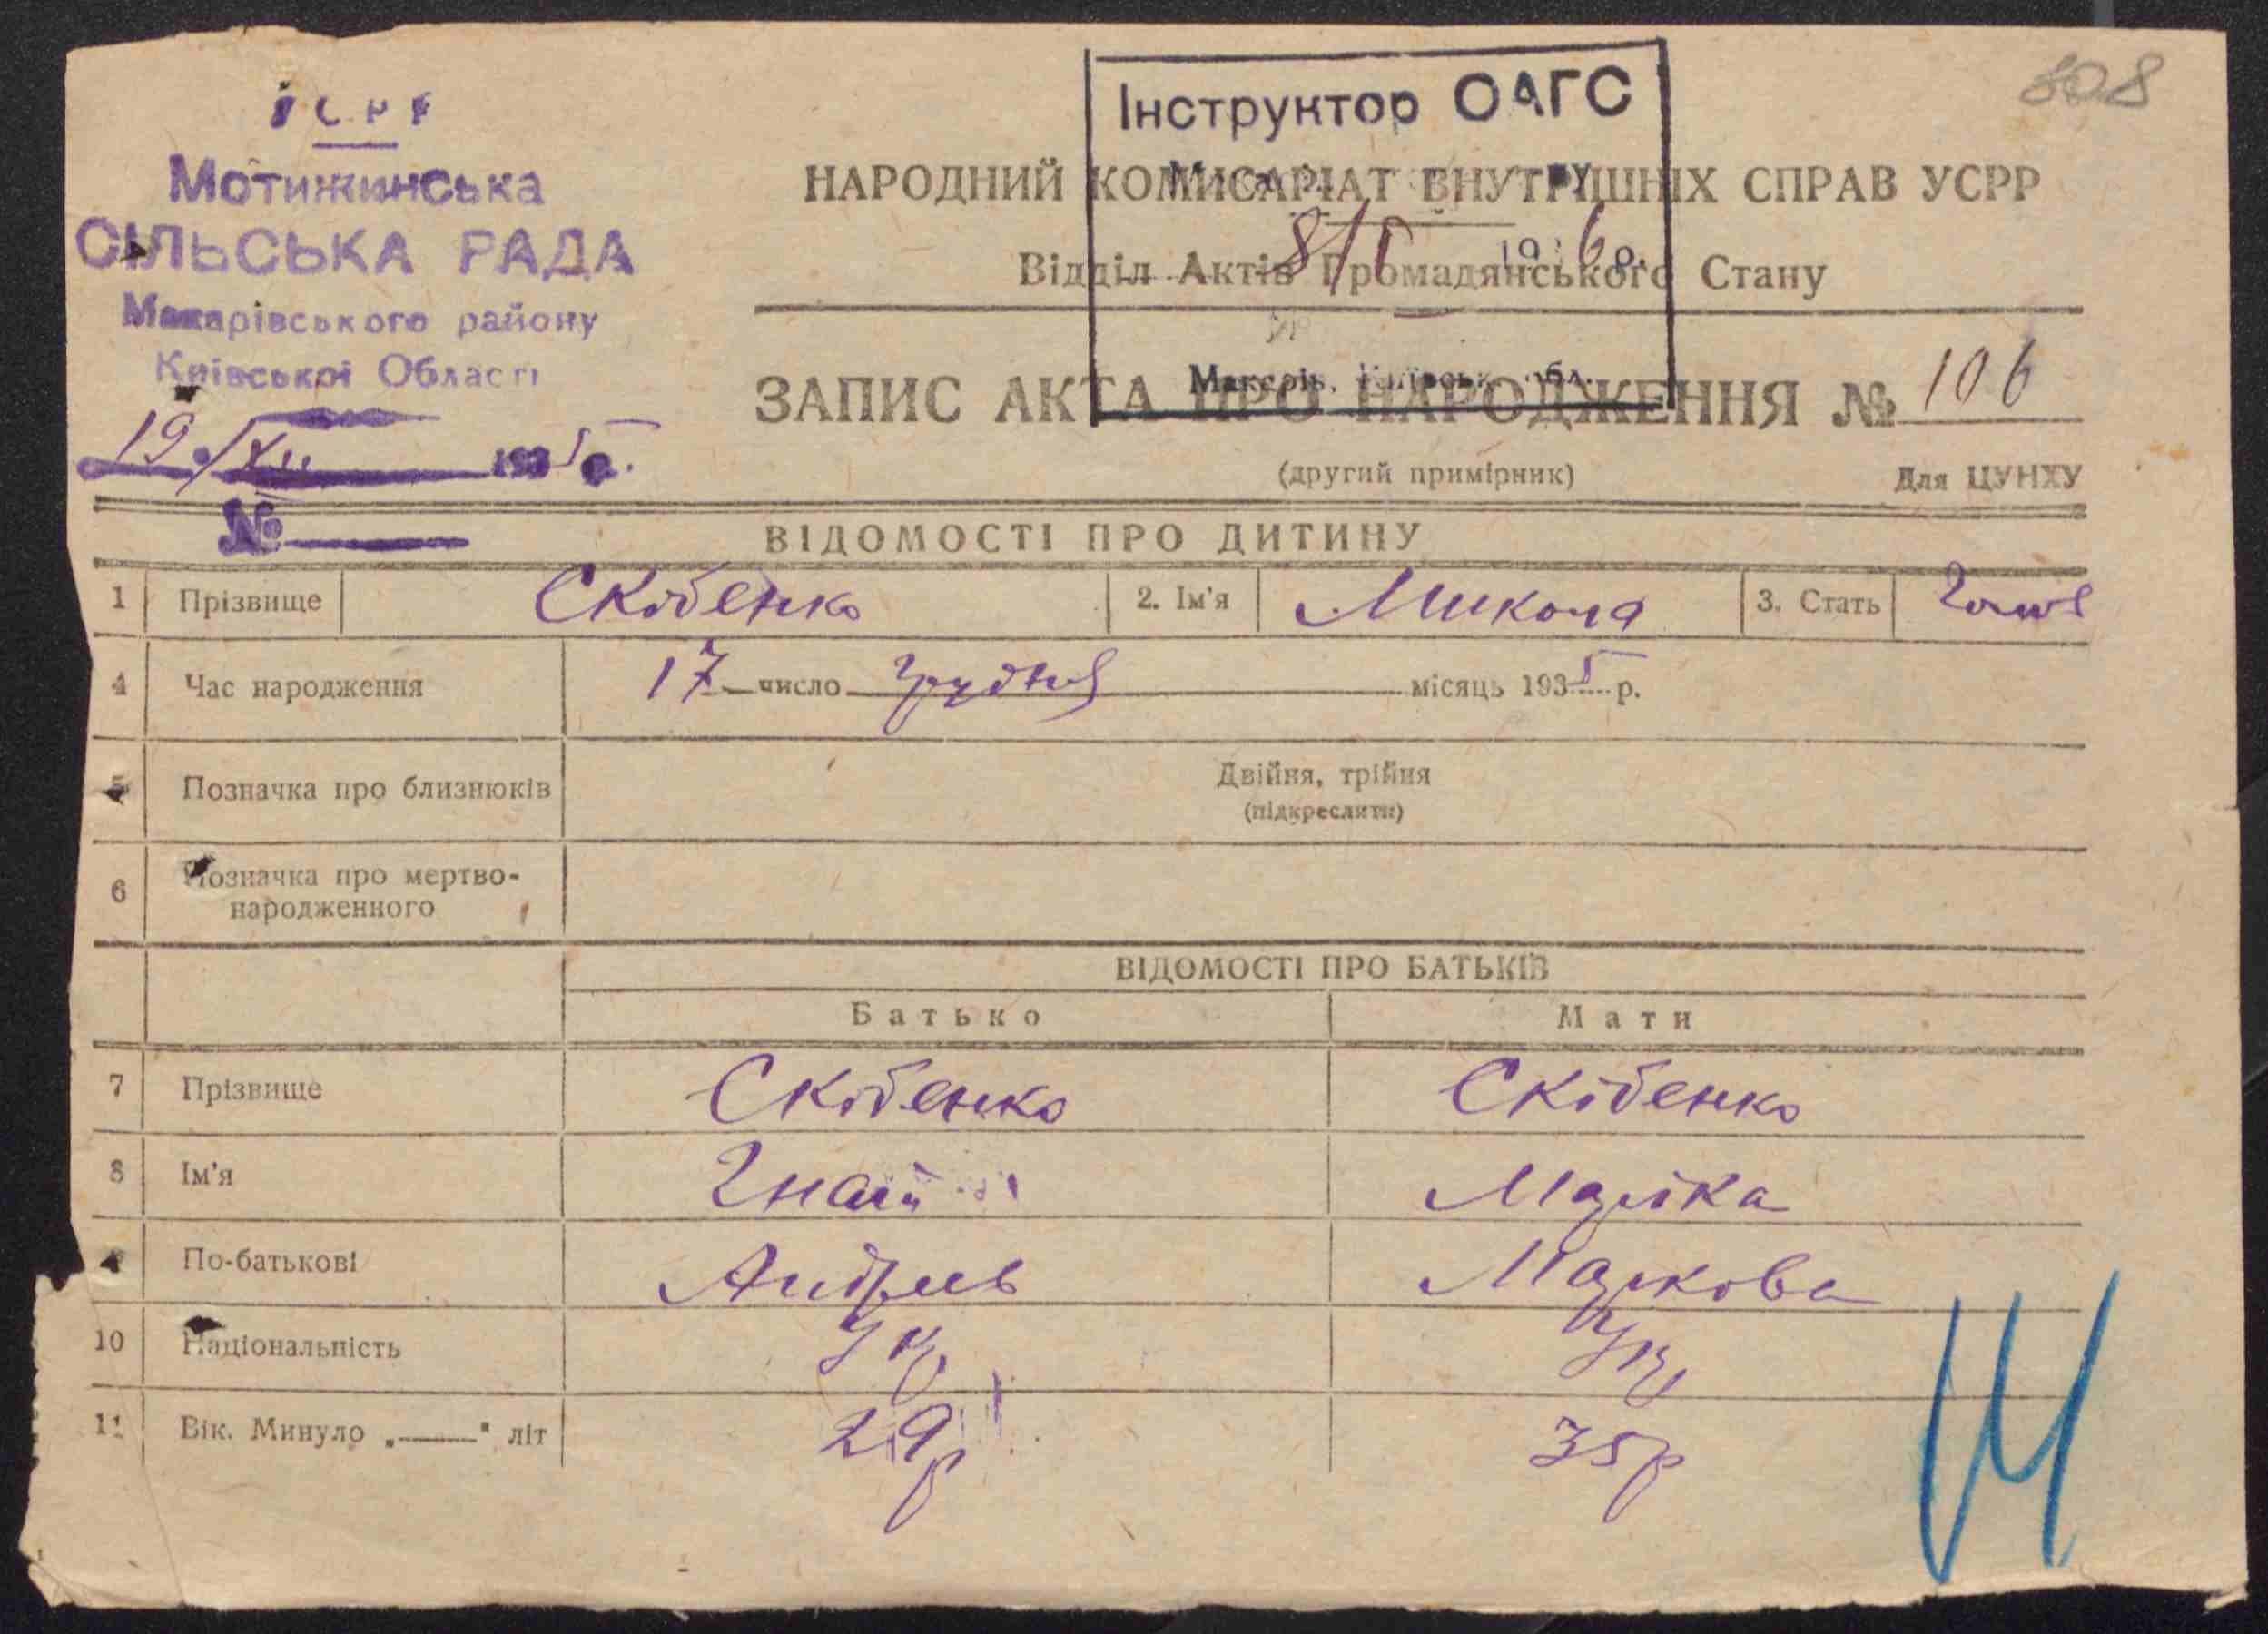 УСРР
Мотижинська
СІЛЬСЬКА РАДА
Макарівського району
Київської Області
19/XII 1935 р.
№
508
Інструктор ОАГС
8/I 1936 р.
Макарів, Київськ. обл.
НАРОДНИЙ КОМИСАРІАТ ВНУТРІШНІХ СПРАВ УСРР
Відділ Актів Громадянського Стану
ЗАПИС АКТА ПРО НАРОДЖЕННЯ № 106
(другий примірник) Для ЦУНХУ
ВІДОМОСТІ ПРО ДИТИНУ
1 Прізвище Скібенко 2. Ім'я Микола 3. Стать
4 Час народження 17 число Грудня місяць 1935 р.
5 Позначка про близнюків Двійня, трійня
(підкреслити)
6 Позначка про мертво-
народженного
ВІДОМОСТІ ПРО БАТЬКІВ
Батько Мати
7 Прізвище Скібенко Скібенко
8 Ім'я Гнат Марійка
9 По-батькові Андрієв Маркова
10 Національність Укр Укр
11 Вік. Минуло „——" літ 29р 35р